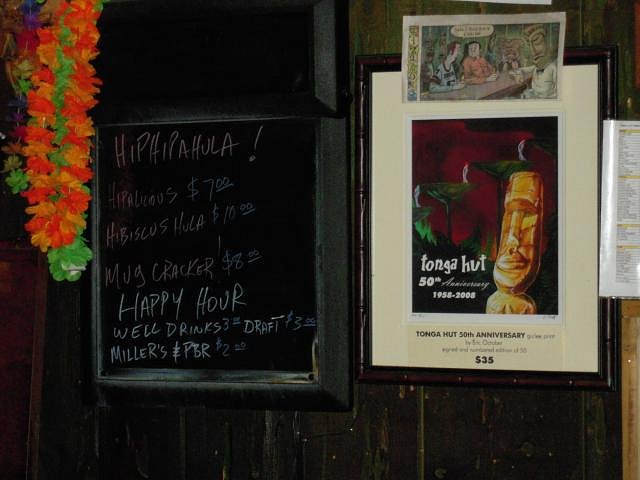 HIPHIPAHULA !
HIPALICIOUS $7.00
HIBISCUS HULA $10.00
MUG CRACKER! $8.00
HAPPY HOUR
WELL DRINKS 3.00 DRAFT $3.00
MILLER'S & PBR $2.00
tonga hut
50th Anniversary
1958-2008
TONGA HUT 50th ANNIVERSARY giclee print
by Eric October
signed and numbered edition of 50
$35